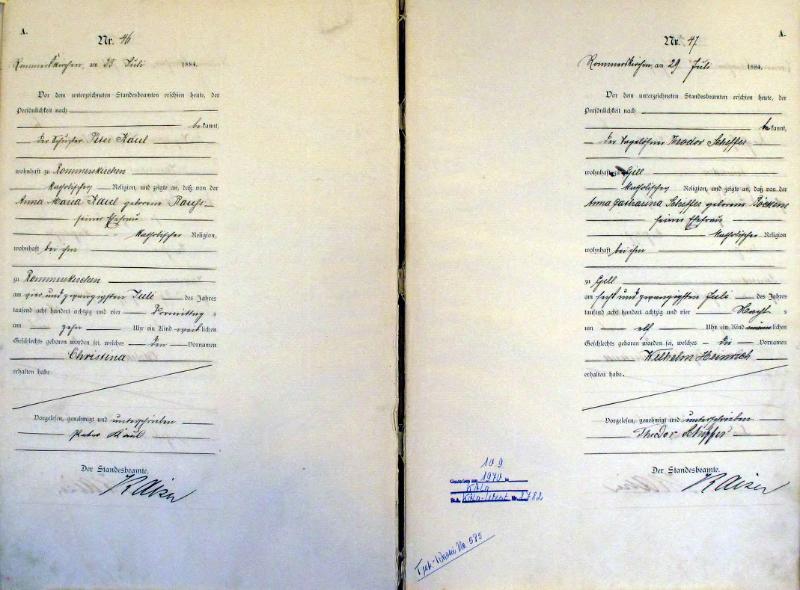 A.
Nr. 46
Rommerskirchen, am 25 Juli 1884.
Vor dem unterzeichneten Standesbeamten erschien heute, der
Persönlichkeit nach
bekannt,
der Peter Kaul
wohnhaft zu Rommerskirchen
katholischer Religion, und zeigte an, daß von der
Anna Maria Kaul geborene
seiner Ehefrau
katholischer Religion,
wohnhaft bei ihm
zu Rommerskirchen
am vier und zwanzigsten Juli des Jahres
tausend acht hundert achtzig und vier Vormittags
um zehn Uhr ein Kind weiblichen
Geschlechts geboren worden sei, welches den Vornamen
Christina
erhalten habe.
Vorgelesen, genehmigt und unterschrieben
Peter Kaul
Der Standesbeamte.
Kaiser
A.
Nr. 47
Rommerskirchen, am 29 Juli 1884.
Vor dem unterzeichneten Standesbeamten erschien heute, der
Persönlichkeit nach
bekannt,
der Tagelöhner Theodor Scheffer
wohnhaft zu Gill
katholischer Religion, und zeigte an, daß von der
Anna Catharina Scheffer geborene
seiner Ehefrau
katholischer Religion
wohnhaft bei ihm
zu Gill
am sechs und zwanzigsten Juli des Jahres
tausend acht hundert achtzig und vier
um elf Uhr ein Kind männlichen
Geschlechts geboren worden sei, welches die Vornamen
Wilhelm Heinrich
erhalten habe.
Vorgelesen, genehmigt und unterschrieben
Theodor Scheffer
Der Standesbeamte.
Kaiser
10.9.
1970
Köln
Köln-West Nr.
Nr. 585